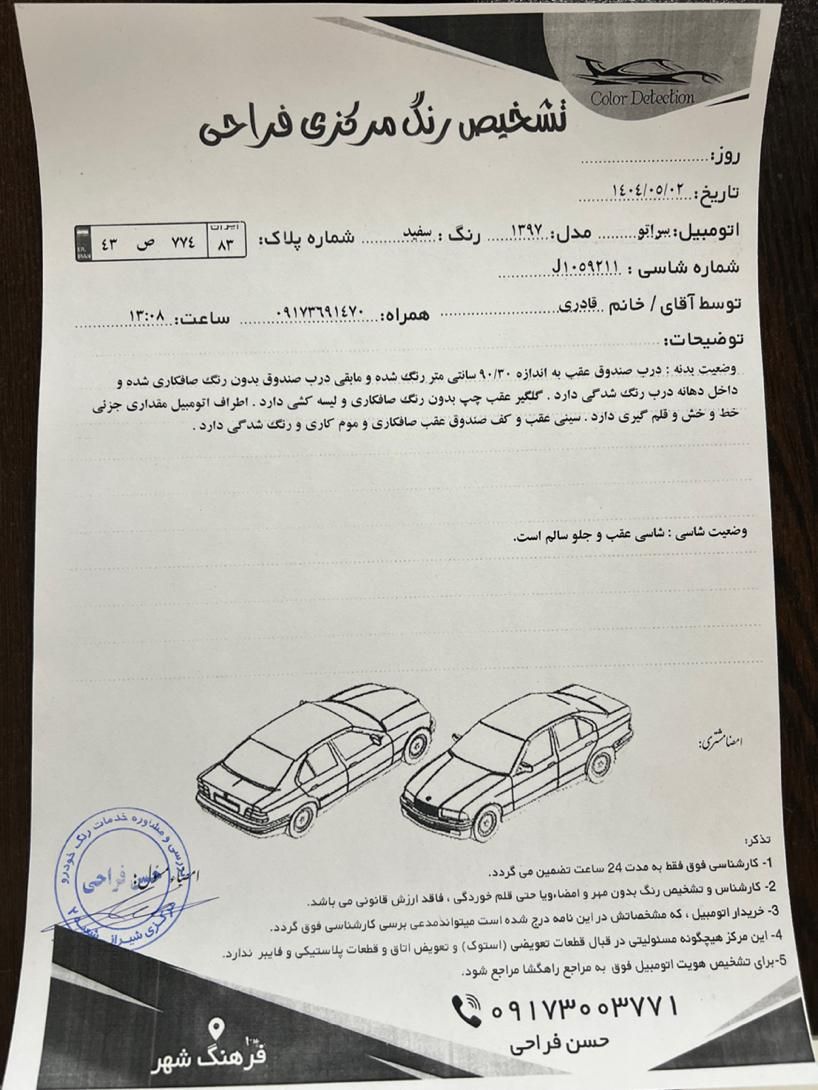 Color Detection
تشخیص رنگ مرکزی فراحی
روز:
تاریخ: ۱۴۰۴/۰۵/۰۲
اتومبیل: سراتو مدل: ۱۳۹۷ رنگ: سفید شماره پلاک: ایران ۸۳ ۷۷۴ ص ۴۳
شماره شاسی : J۱۰۵۹۲۱۱
توسط آقای/ خانم قادری همراه: ۰۹۱۷۳۶۹۱۴۷۰ ساعت: ۱۳:۰۸
توضیحات:
وضعیت بدنه : درب صندوق عقب به اندازه ۹۰/۳۰ سانتی متر رنگ شده و مابقی درب صندوق بدون رنگ صافکاری شده و
داخل دهانه درب رنگ شدگی دارد . گلگیر عقب چپ بدون رنگ صافکاری و لیسه کشی دارد . اطراف اتومبیل مقداری جزئی
خط و خش و قلم گیری دارد . سینی عقب و کف صندوق عقب صافکاری و موم کاری و رنگ شدگی دارد .
وضعیت شاسی : شاسی عقب و جلو سالم است.
امضا مشتری:
امضاء مسئول:
بررسی و مشاوره خدمات رنگ خودرو
حسن فراحی
تذکر:
1- کارشناسی فوق فقط به مدت 24 ساعت تضمین می گردد.
2- کارشناس و تشخیص رنگ بدون مهر و امضاءویا حتی قلم خوردگی ، فاقد ارزش قانونی می باشد.
3- خریدار اتومبیل ، که مشخصاتش در این نامه درج شده است میتواندمدعی برسی کارشناسی فوق گردد.
4- این مرکز هیچگونه مسئولیتی در قبال قطعات تعویضی (استوک) و تعویض اتاق و قطعات پلاستیکی و فایبر ندارد.
5-برای تشخیص هویت اتومبیل فوق به مراجع راهگشا مراجع شود.
۰۹۱۷۳۰۰۳۷۷۱
حسن فراحی
فرهنگ شهر